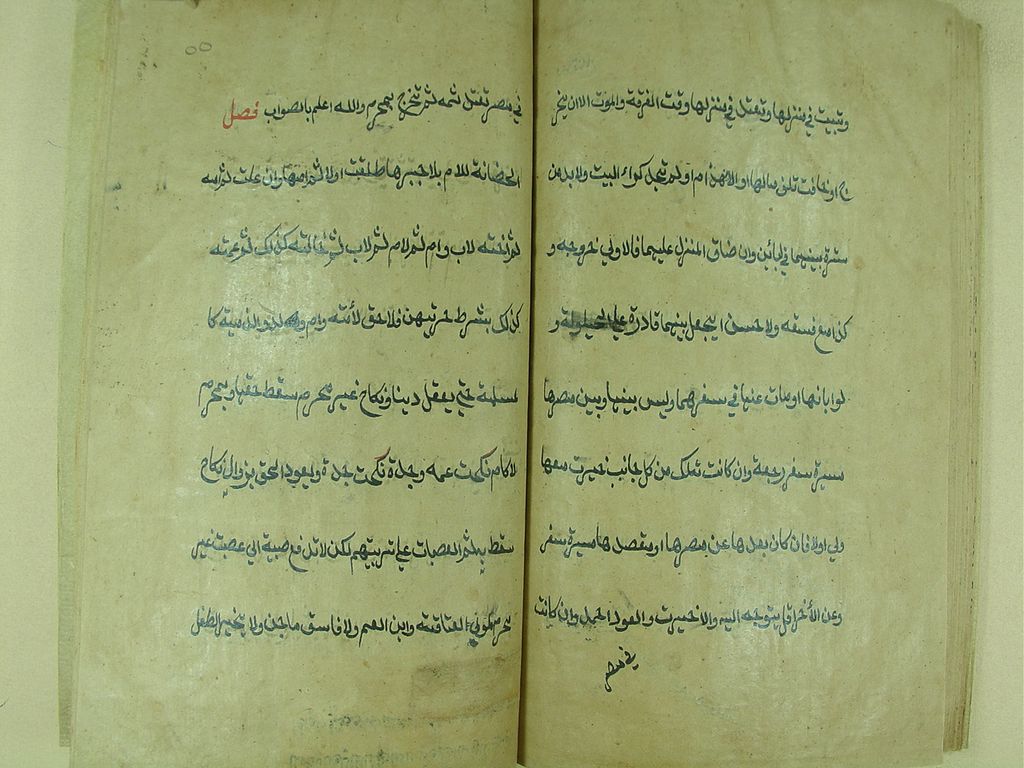 وتبيت في منزلها وتعتد في منزلها وقت الفرقة والموت الا ان يخر
ج او خافت تلف مالها او الانهدام او لم تجد كراء البيت ولا بد من
سترة بينهما في البائن وان ضاق المنزل عليهما فالاولى خروجه و
كذا مع فسقه ولا حسن ان يجعل بينهما قادرة على الحيلولة و
لو ابانها او مات عنها في سفرهما وليس بينها وبين مصرها
مسيرة سفر رجعة وان كانت تلك من كل جانب خيرت معها
ولي اولا فان كان بعدها عن مصرها او مقصدها مسيرة سفر
وعن الأخر اقل يتوجه اليه والا خيرت والعود احمد وان كانت
في مصر
٥٥
في مصر تعتد ثمه ثم تخرج بمحرم والله اعلم بالصواب فصل
الحضانة للام بلا جبرها طلقت اولا ثم امها وان علت ثم امه
ثم اخته لاب وام ثم لام ثم لاب ثم خالته كذلك ثم عمته
كذلك بشرط حريتهن فلا حق لأمة وام ولد والذمية كا
لمسلمة حتى يعقل دينا ونكاح غير محرم سقط حقها وبمحرم
لا كام نكحت عمه وجدة نكحت جده ويعود الحق بزوال نكاح
سقط به ثم العصبات على ترتيبهم لكن لا تدفع صبية الى عصبة غير
محرم كمولى العتاقة وابن العم ولا فاسق ماجن ولا يخير الطفل